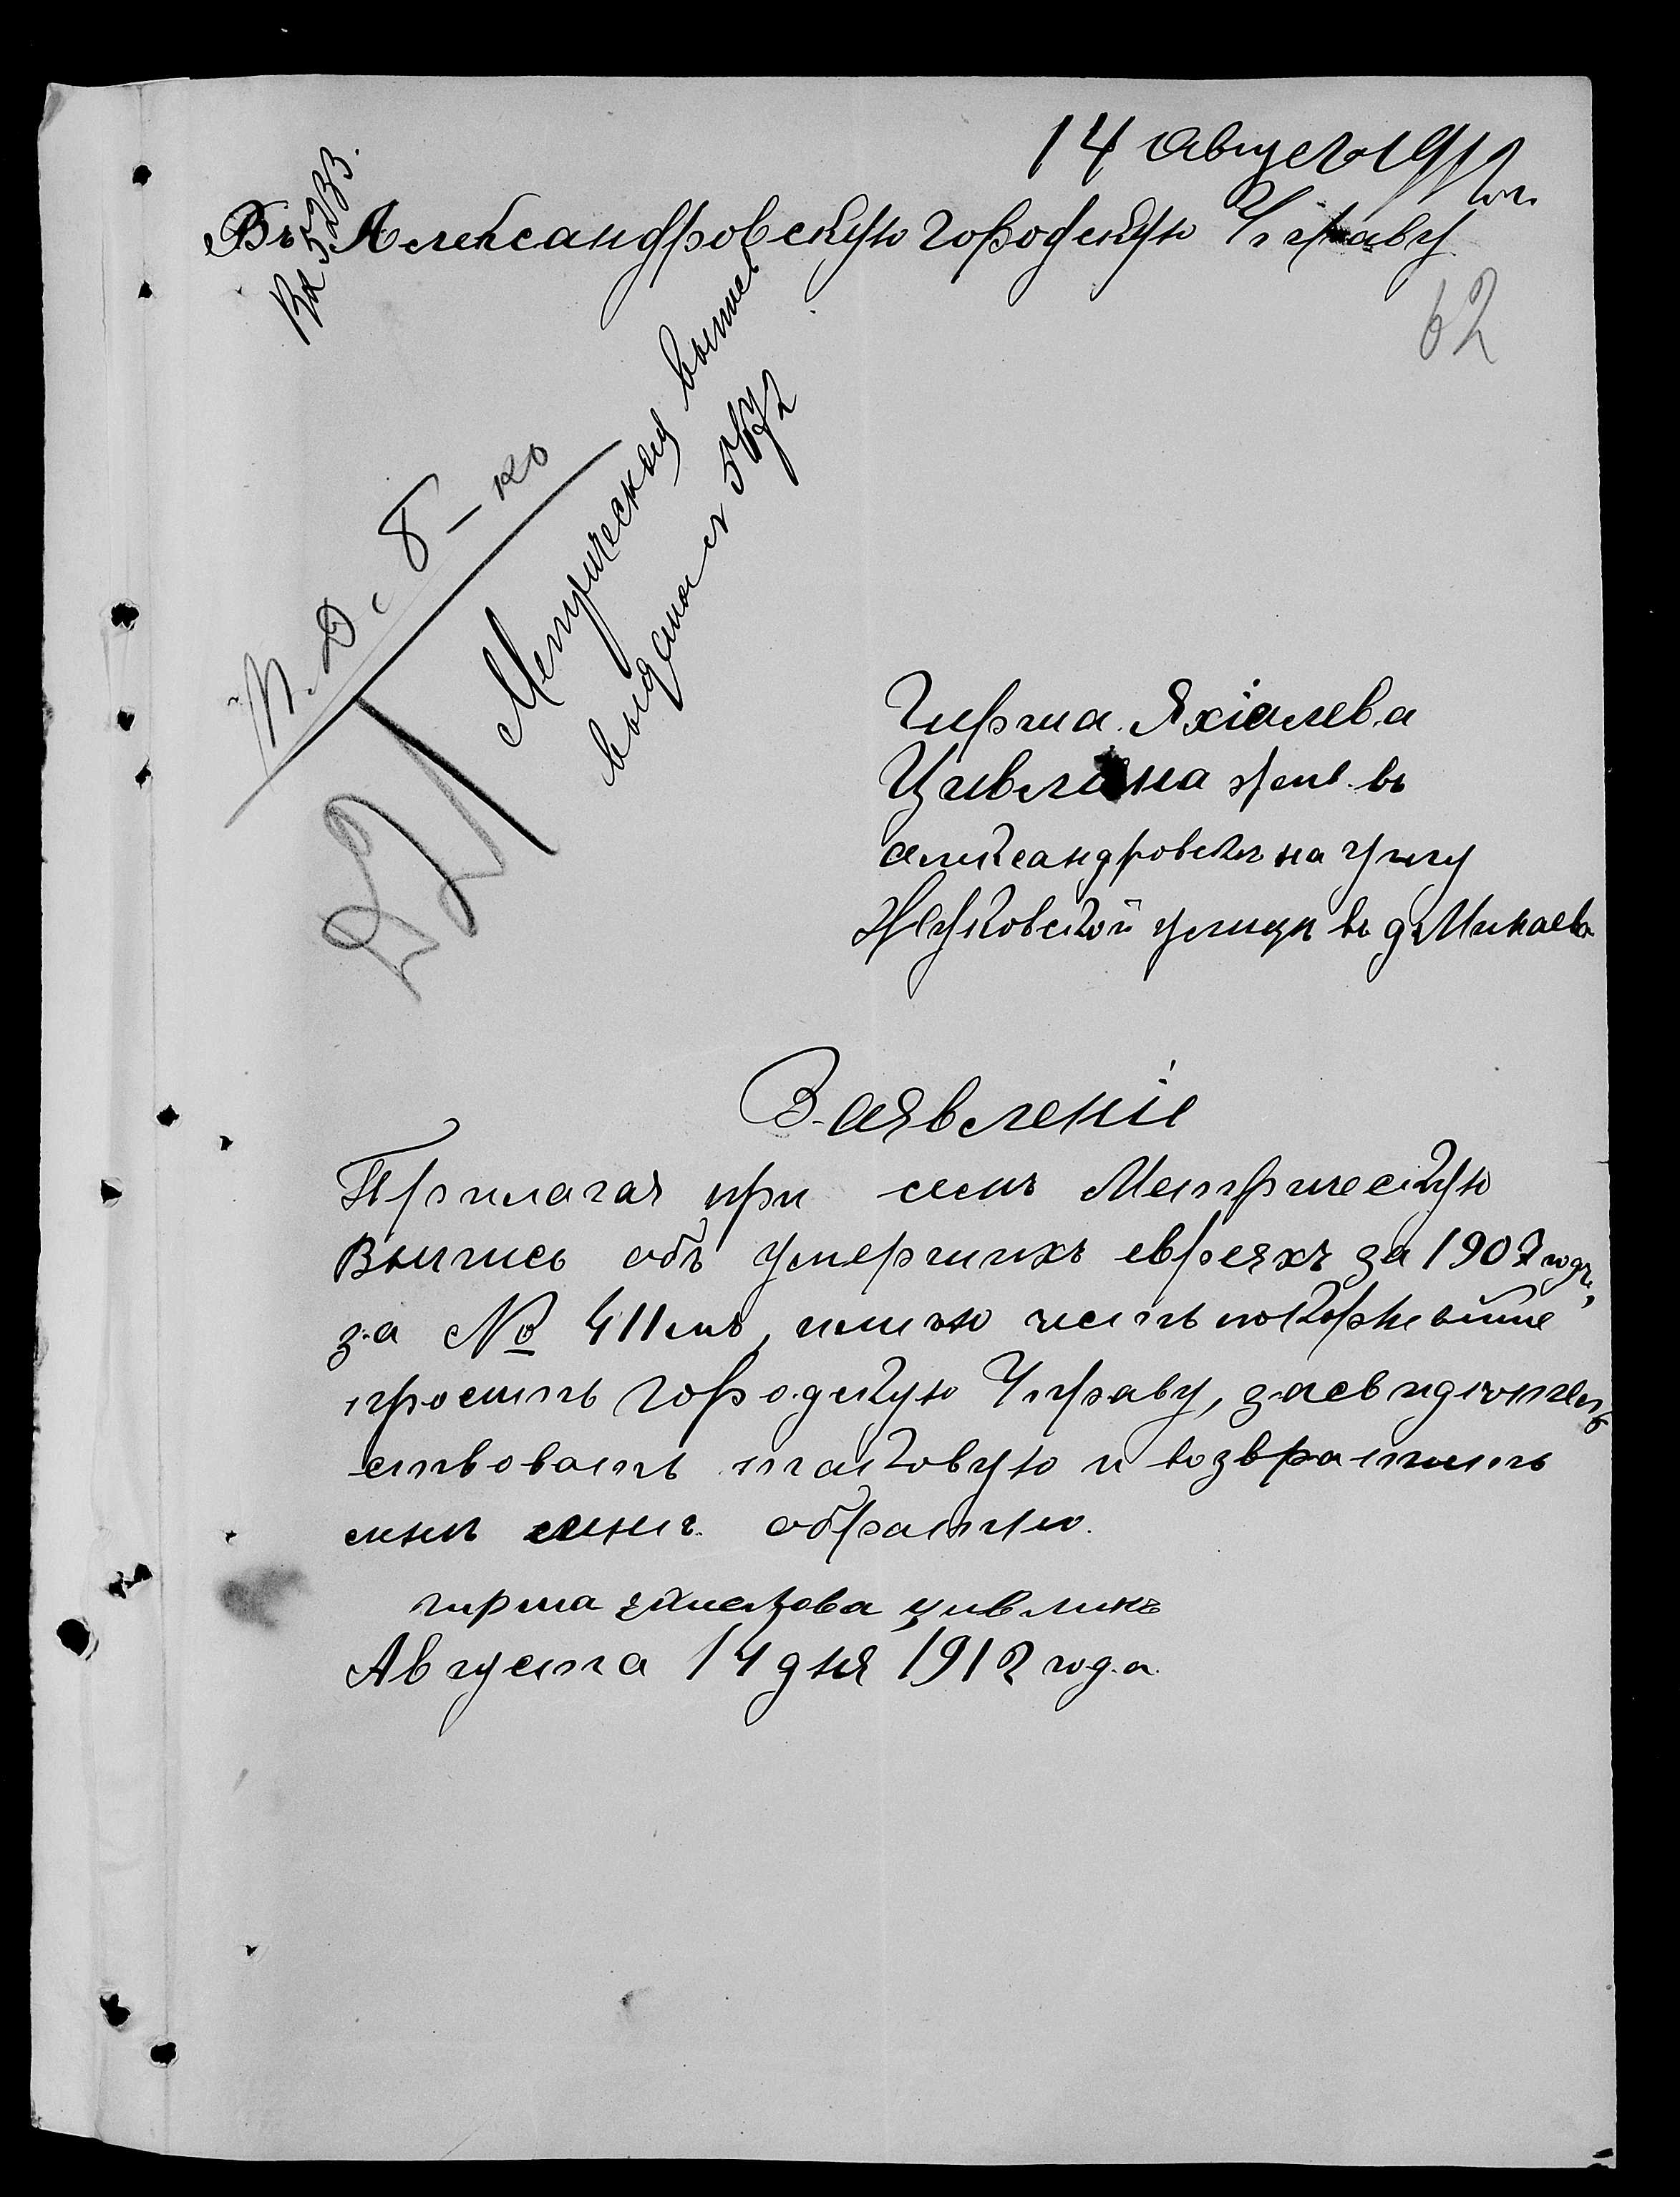 14 Август 1912 г.
Въ Александровскую городскую Управу
Вх 5233.
62
Метрическая выпись
выдана
Гирша Яхіелева
Цивлина жив. въ
Александровскъ на углу
Жуковской улицы въ д. Минаева
Заявленіе
Прилагая при семъ Метрическую
Выпись объ умершихъ евреяхъ за 1907 годъ,
за № 411мъ, имѣю честь покорнѣйше
просить городскую Управу, засвидѣтель
ствовать таковую и возвратить
мнѣ обратно.
гирша цивлинъ
Августа 14 дня 1912 года.